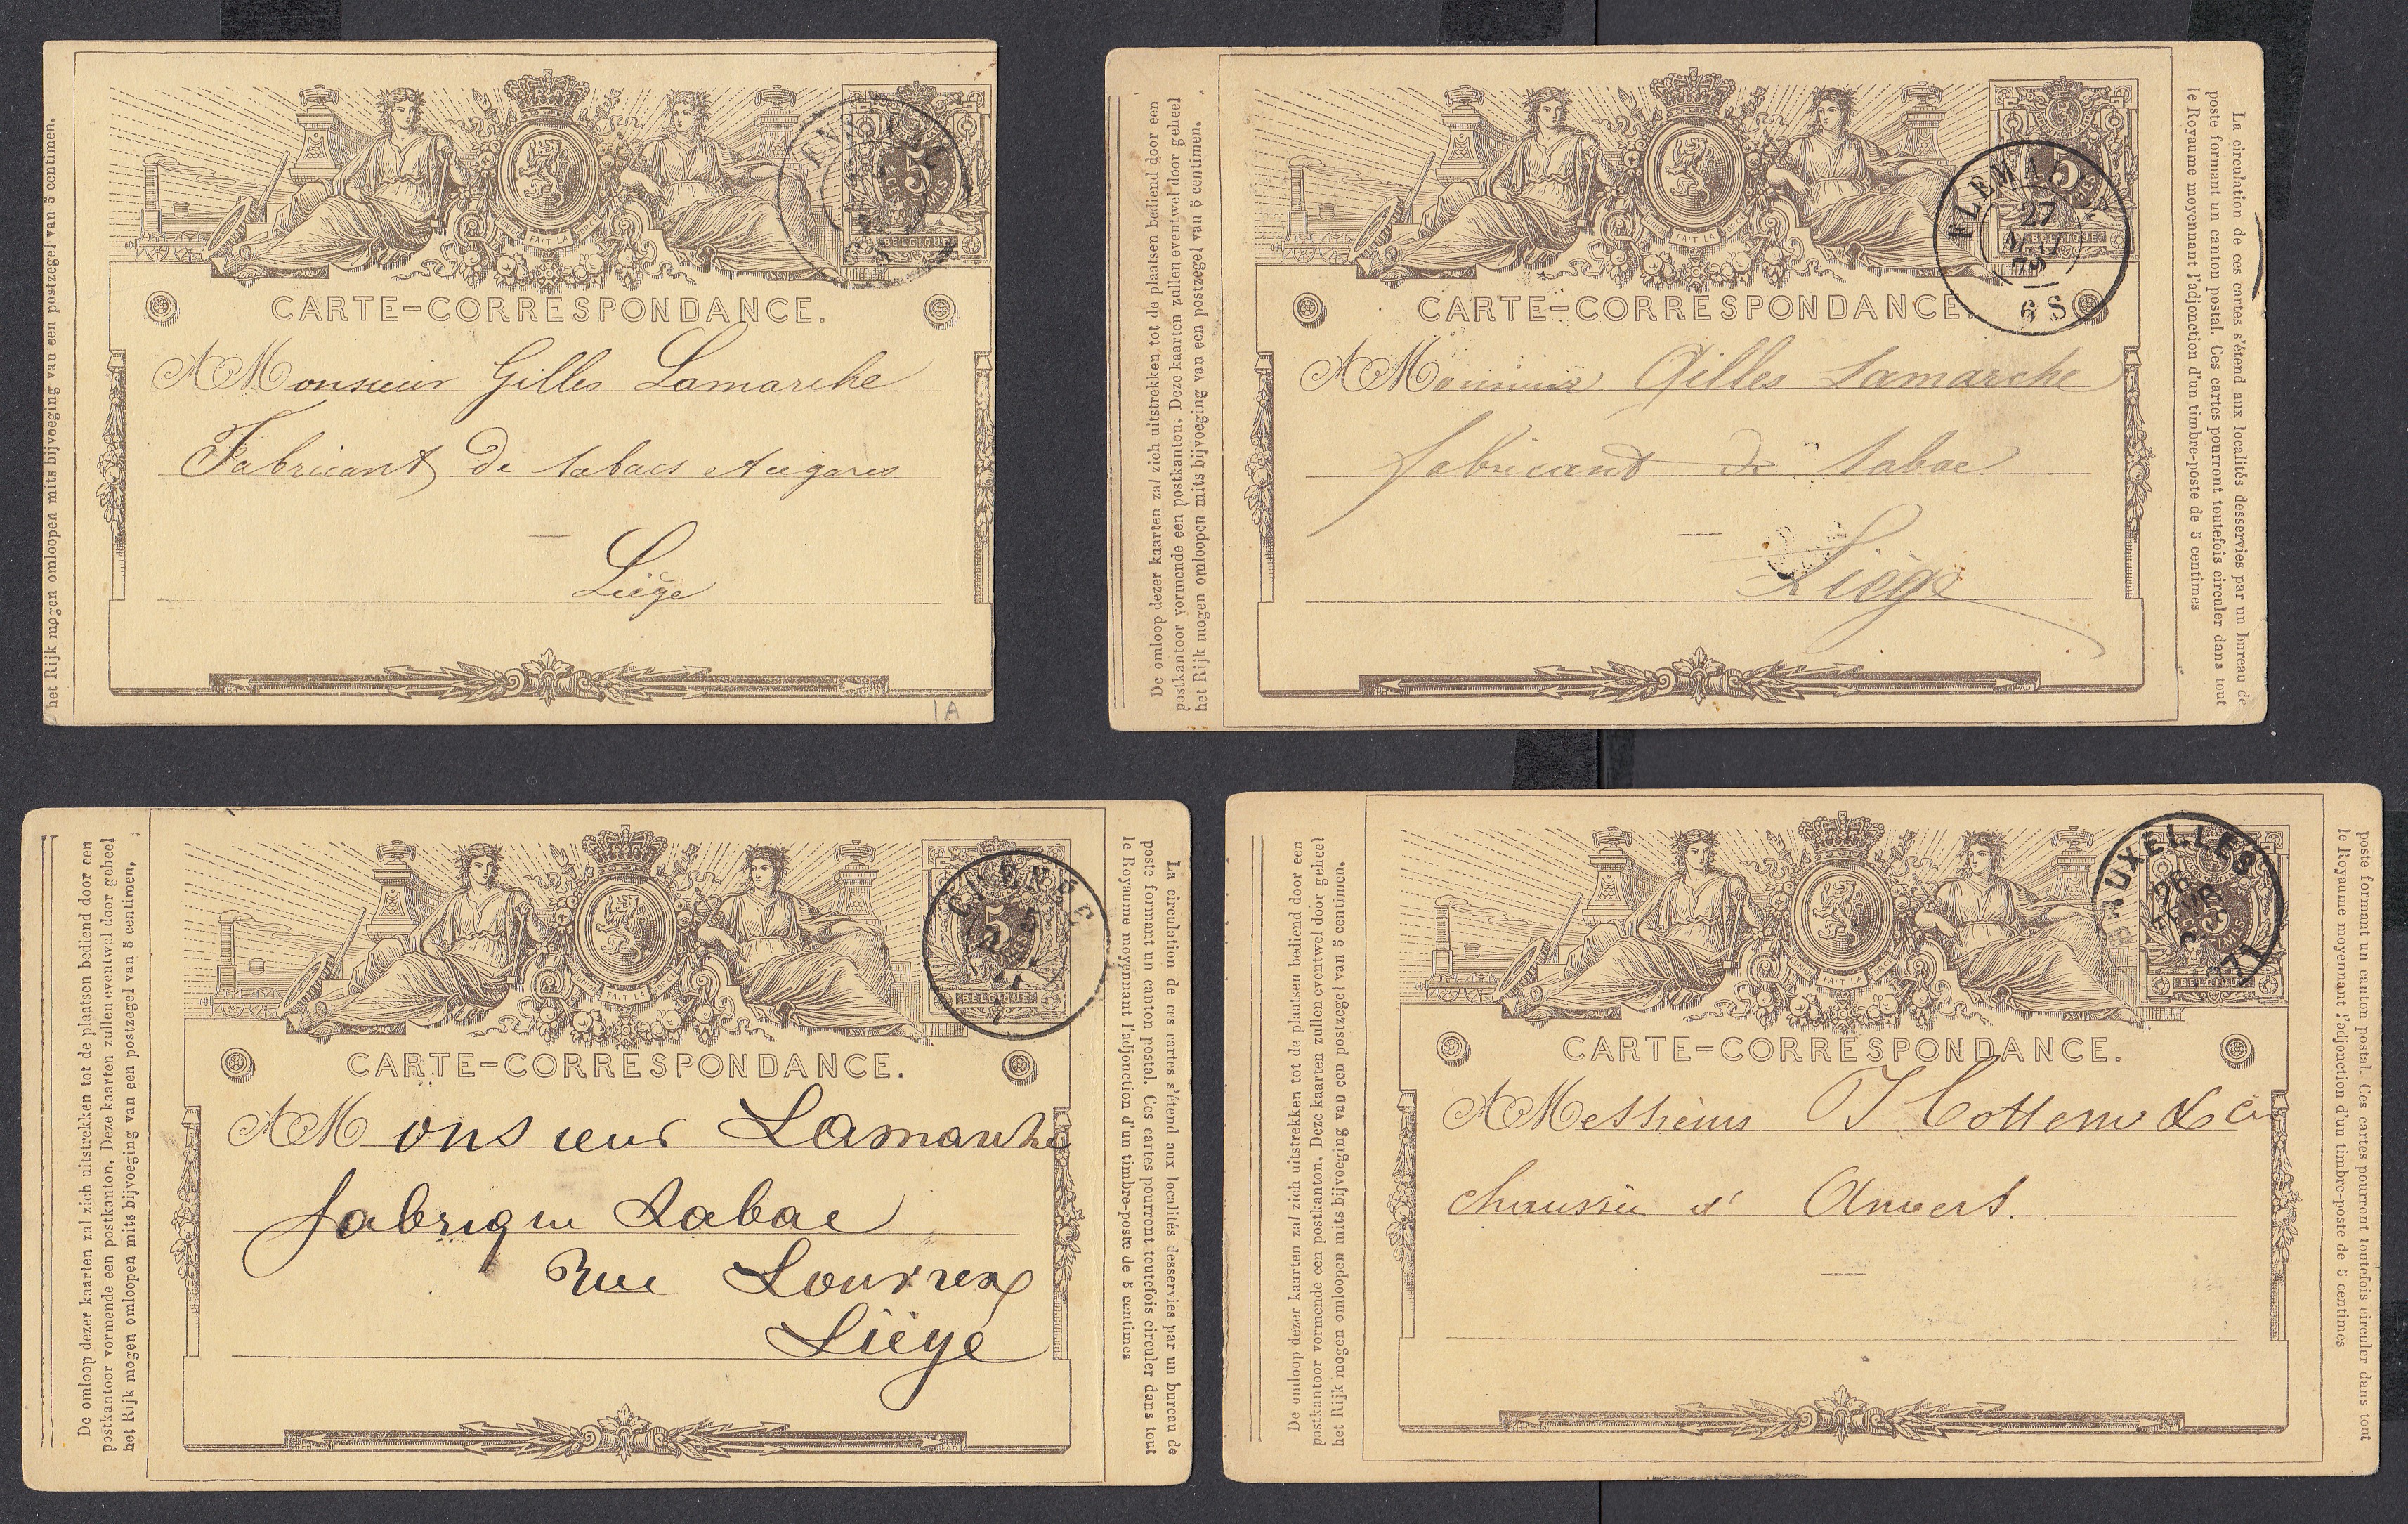 het Rijk mogen omloopen mits bijvoeging van een postzegel van 5 centimen.
UNION FAIT LA FORCE
5
CENTIMES
BELGIQUE
CARTE-CORRESPONDANCE.
A M onsieur Gilles Lamarche
Fabricant de tabacs et cigares
Liège
1A
De omloop dezer kaarten zal zich uitstrekken tot de plaatsen bediend door een
postkantoor vormende een postkanton. Deze kaarten zullen eventwel door geheel
het Rijk mogen omloopen mits bijvoeging van een postzegel van 5 centimen.
UNION FAIT LA FORCE
5
BELGIQUE
27
MAI
79
6 S
CARTE-CORRESPONDANCE.
A Monsieur Gilles Lamarche
fabricant de tabac
Liège
La circulation de ces cartes s'étend aux localités desservies par un bureau de
poste formant un canton postal. Ces cartes pourront toutefois circuler dans tout
le Royaume moyennant l'adjonction d'un timbre-poste de 5 centimes
De omloop dezer kaarten zal zich uitstrekken tot de plaatsen bediend door een
postkantoor vormende een postkanton. Deze kaarten zullen eventwel door geheel
het Rijk mogen omloopen mits bijvoeging van een postzegel van 5 centimen.
UNION FAIT LA FORCE
5
BELGIQUE
CHÊNÉE
CARTE-CORRESPONDANCE.
A M onsieur Lamarche
fabrique tabac
Rue Louvrex
Liége
La circulation de ces cartes s'étend aux localités desservies par un bureau de
poste formant un canton postal. Ces cartes pourront toutefois circuler dans tout
le Royaume moyennant l'adjonction d'un timbre-poste de 5 centimes
De omloop dezer kaarten zal zich uitstrekken tot de plaatsen bediend door een
postkantoor vormende een postkanton. Deze kaarten zullen eventwel door geheel
het Rijk mogen omloopen mits bijvoeging van een postzegel van 5 centimen.
UNION FAIT LA FORCE
5
BELGIQUE
BRUXELLES
CARTE-CORRESPONDANCE.
A Messieurs
chaussée d' Anvers.
poste formant un canton postal. Ces cartes pourront toutefois circuler dans tout
le Royaume moyennant l'adjonction d'un timbre-poste de 5 centimes